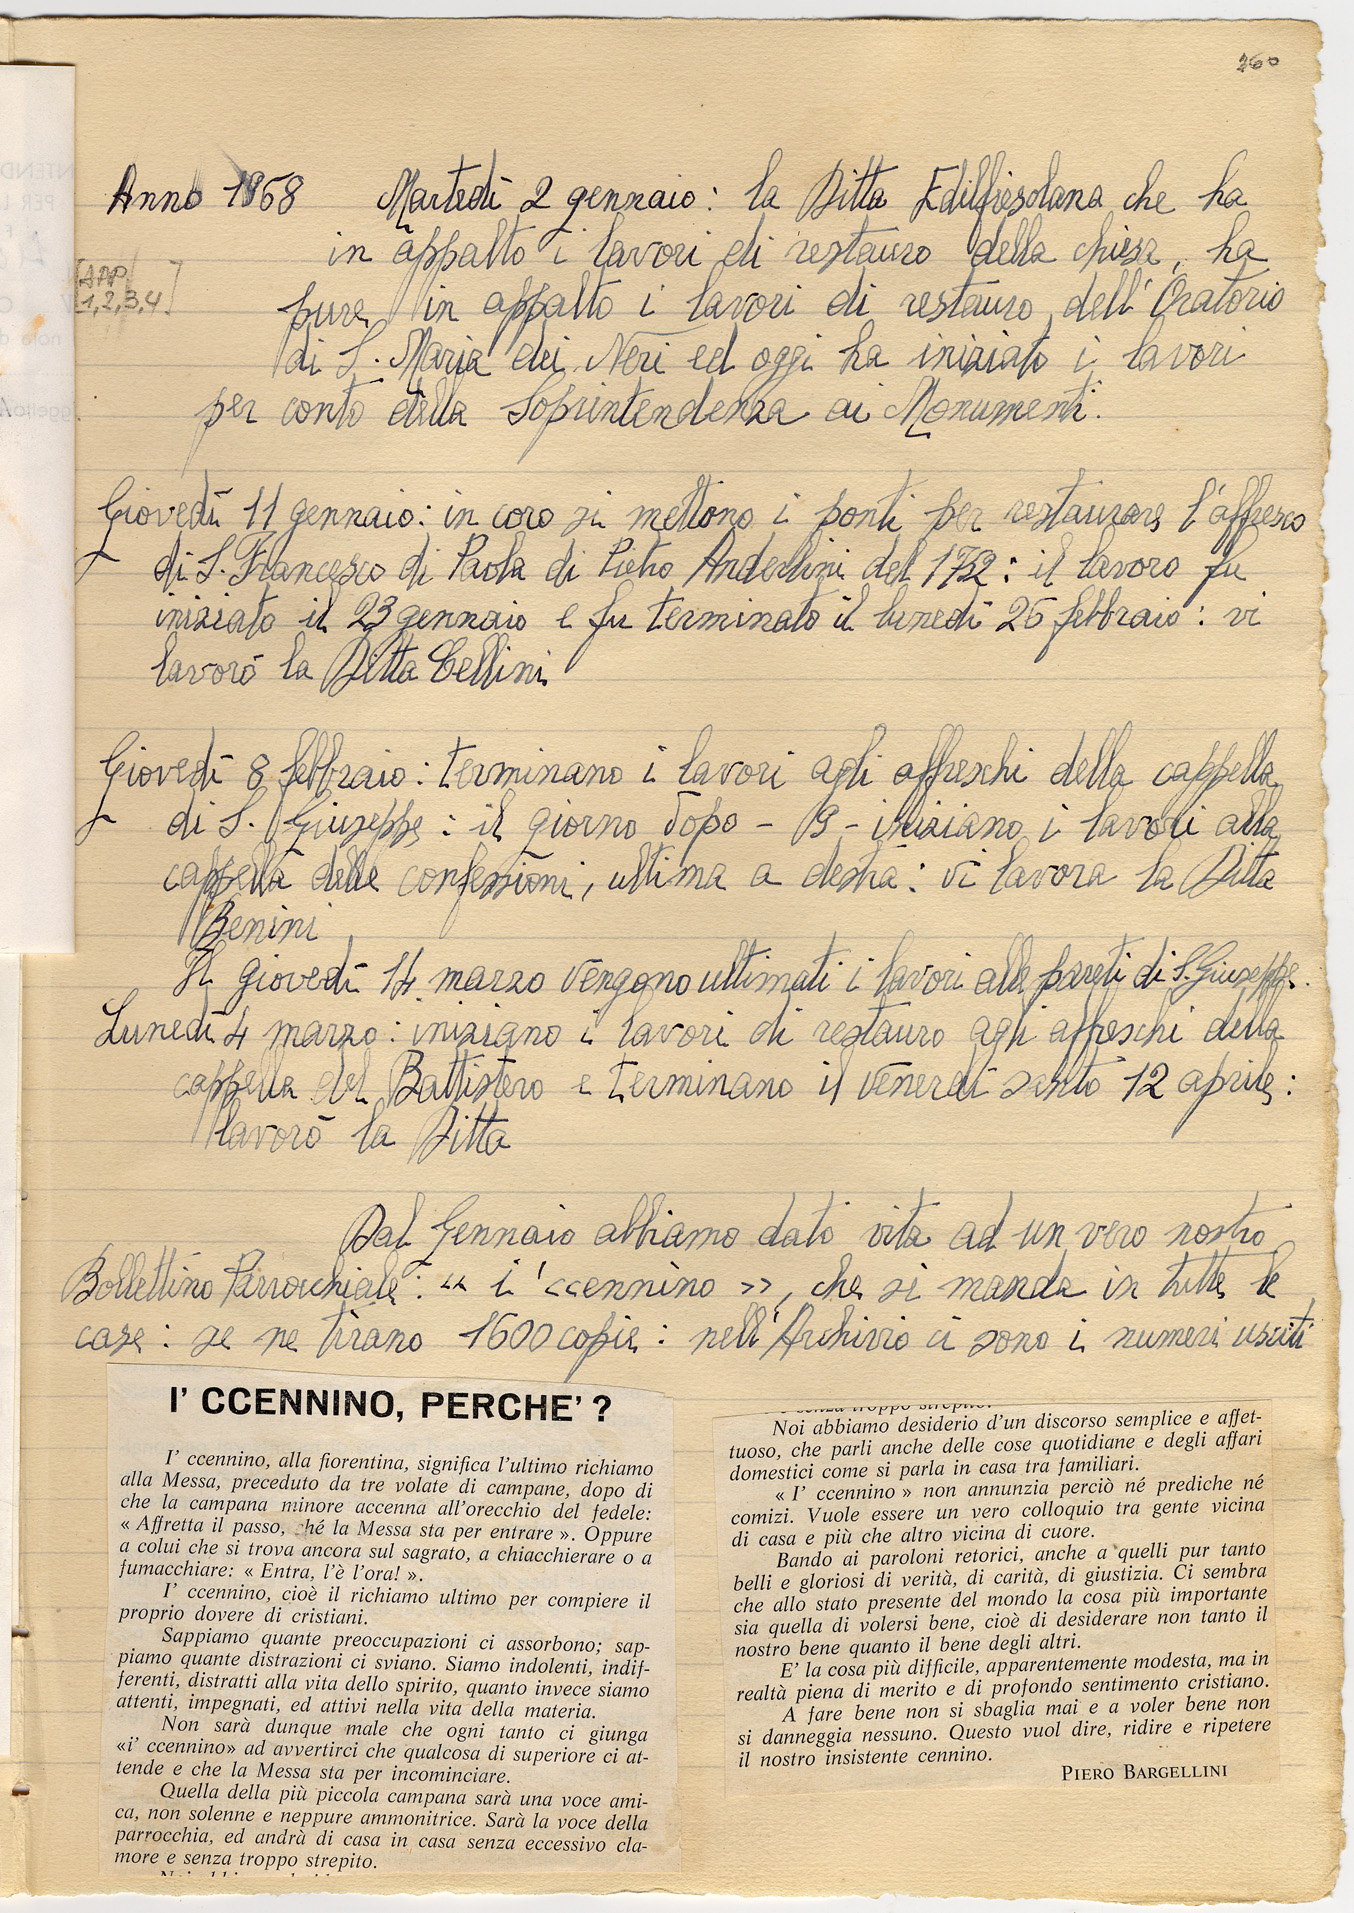 260
Anno 1968 Martedì 2 gennaio: la Ditta Edilfiesolana che ha
in appalto i lavori di restauro della chiesa, ha
[APP. 1,2,3,4]
pure in appalto i lavori di restauro dell'Oratorio
di S. Maria dei Neri ed oggi ha iniziato i lavori
per conto della Soprintendenza ai Monumenti.
Giovedì 11 gennaio: in coro si mettono i ponti per restaurare l'affresco
di S. Francesco di Paola di Pietro Anderlini del 1752: il lavoro fu
iniziato il 23 gennaio e fu terminato il lunedì 26 febbraio: vi
lavorò la Ditta Cellini
Giovedì 8 febbraio: terminano i lavori agli affreschi della cappella
di S. Giuseppe: il giorno dopo - 9 - iniziano i lavori alla
cappella delle confessioni, ultima a destra: vi lavora la Ditta
Benini
Il giovedì 14 marzo vengono ultimati i lavori alle pareti di S. Giuseppe.
Lunedì 4 marzo: iniziano i lavori di restauro agli affreschi della
cappella del Battistero e terminano il venerdì santo 12 aprile:
lavorò la Ditta
Dal Gennaio abbiamo dato vita ad un vero nostro
Bollettino Parrocchiale: « i' ccennino », che si manda in tutte le
case: se ne tirano 1600 copie: nell'Archivio ci sono i numeri usciti
I' CCENNINO, PERCHE' ?
I' ccennino, alla fiorentina, significa l'ultimo richiamo
alla Messa, preceduto da tre volate di campane, dopo di
che la campana minore accenna all'orecchio del fedele:
« Affretta il passo, ché la Messa sta per entrare ». Oppure
a colui che si trova ancora sul sagrato, a chiacchierare o a
fumacchiare: « Entra, l'è l'ora! ».
I' ccennino, cioè il richiamo ultimo per compiere il
proprio dovere di cristiani.
Sappiamo quante preoccupazioni ci assorbono; sap-
piamo quante distrazioni ci sviano. Siamo indolenti, indif-
ferenti, distratti alla vita dello spirito, quanto invece siamo
attenti, impegnati, ed attivi nella vita della materia.
Non sarà dunque male che ogni tanto ci giunga
«i' ccennino» ad avvertirci che qualcosa di superiore ci at-
tende e che la Messa sta per incominciare.
Quella della più piccola campana sarà una voce ami-
ca, non solenne e neppure ammonitrice. Sarà la voce della
parrocchia, ed andrà di casa in casa senza eccessivo cla-
more e senza troppo strepito.
e senza troppo strepito.
Noi abbiamo desiderio d'un discorso semplice e affet-
tuoso, che parli anche delle cose quotidiane e degli affari
domestici come si parla in casa tra familiari.
« I' ccennino » non annunzia perciò né prediche né
comizi. Vuole essere un vero colloquio tra gente vicina
di casa e più che altro vicina di cuore.
Bando ai paroloni retorici, anche a quelli pur tanto
belli e gloriosi di verità, di carità, di giustizia. Ci sembra
che allo stato presente del mondo la cosa più importante
sia quella di volersi bene, cioè di desiderare non tanto il
nostro bene quanto il bene degli altri.
E' la cosa più difficile, apparentemente modesta, ma in
realtà piena di merito e di profondo sentimento cristiano.
A fare bene non si sbaglia mai e a voler bene non
si danneggia nessuno. Questo vuol dire, ridire e ripetere
il nostro insistente cennino.
PIERO BARGELLINI